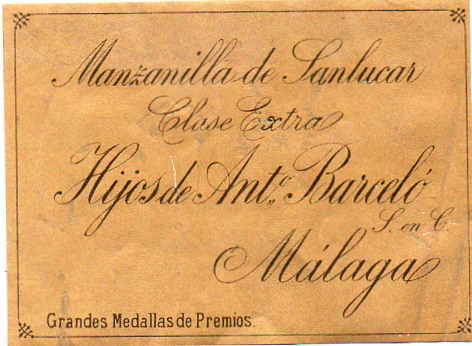 Manzanilla de Sanlucar
Clase Extra
Hijos de Ant.º Barceló
S. en C.
Málaga
Grandes Medallas de Premios.